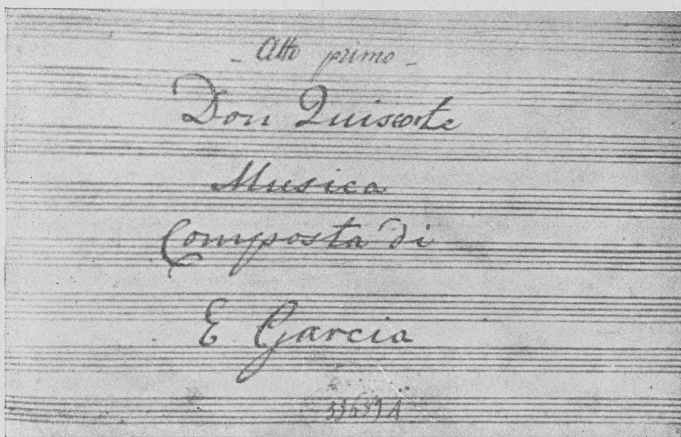 - Atto primo -
Don Quisciotte
Musica
Composta di
E Garcia
33689 A